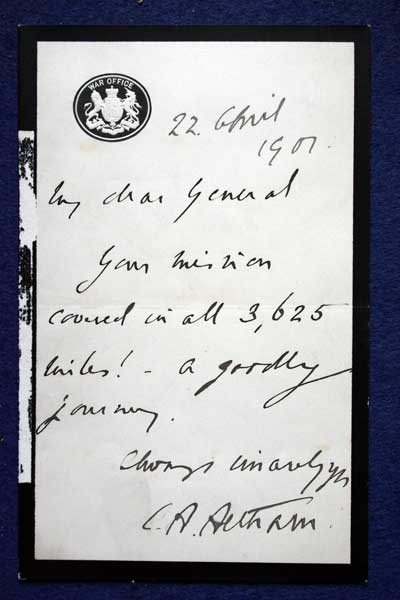 WAR OFFICE
22. April
1901.
My dear General
Your mission
covered in all 3,625
miles! - a goodly
journey.
Always sincerely yrs